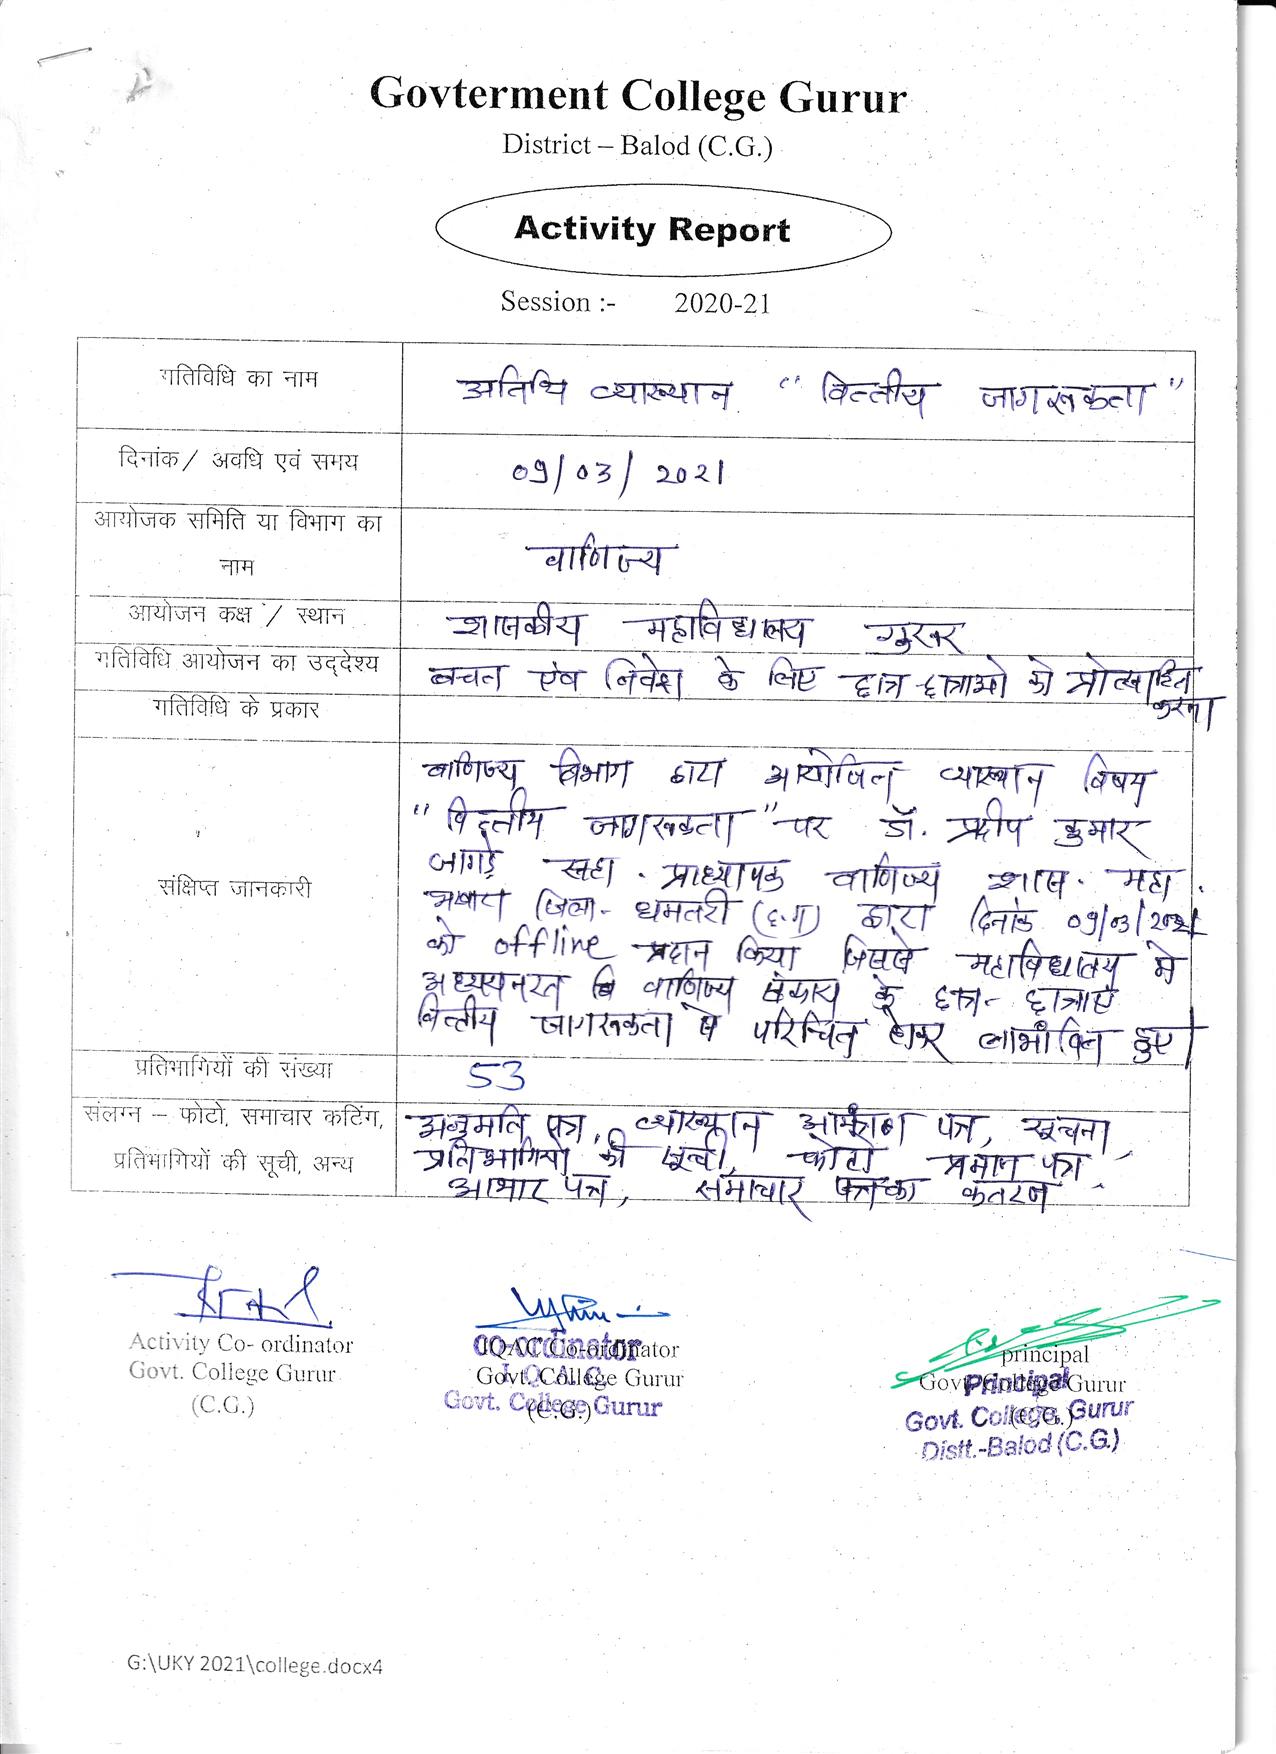 Govterment College Gurur
District – Balod (C.G.)
Activity Report
Session :- 2020-21
गतिविधि का नाम
अतिथि व्याख्यान "वित्तीय जागरूकता"
दिनांक/ अवधि एवं समय
09/03/2021
आयोजक समिति या विभाग का
नाम
वाणिज्य
आयोजन कक्ष / स्थान
शासकीय महाविद्यालय गुरूर
गतिविधि आयोजन का उद्देश्य
बचत एंव निवेश के लिए छात्र-छात्राओ को प्रोत्साहित
करना
गतिविधि के प्रकार
संक्षिप्त जानकारी
वाणिज्य विभाग द्वारा आयोजित व्याख्यान विषय
"वित्तीय जागरूकता" पर डॉ. प्रदीप कुमार
जांगड़े सहा. प्राध्यापक वाणिज्य शास. महा.
जिला- धमतरी (छ.ग) द्वारा दिनांक 09/03/2021
को offline प्रदान किया जिससे महाविद्यालय मे
अध्ययनरत वाणिज्य संकाय के छात्र-छात्राएं
वित्तीय जागरूकता से परिचित होकर लाभांवित हुए।
प्रतिभागियों की संख्या
53
संलग्न – फोटो, समाचार कटिंग,
प्रतिभागियों की सूची, अन्य
अनुमति पत्र, व्याख्यान पत्र, सूचना,
प्रतिभागियो की सूची, फोटो प्रमान पत्र,
आभार पत्र, समाचार पत्र का कतरन
Activity Co- ordinator
Govt. College Gurur
(C.G.)
IQAC Co-ordinator
Govt. College Gurur
(C.G.)
CO-ORDINATOR
I.Q.A.C.
Govt. College Gurur
principal
Govt. College Gurur
(C.G.)
Principal
Govt. College, Gurur
Distt.-Balod (C.G.)
G:\UKY 2021\college.docx4